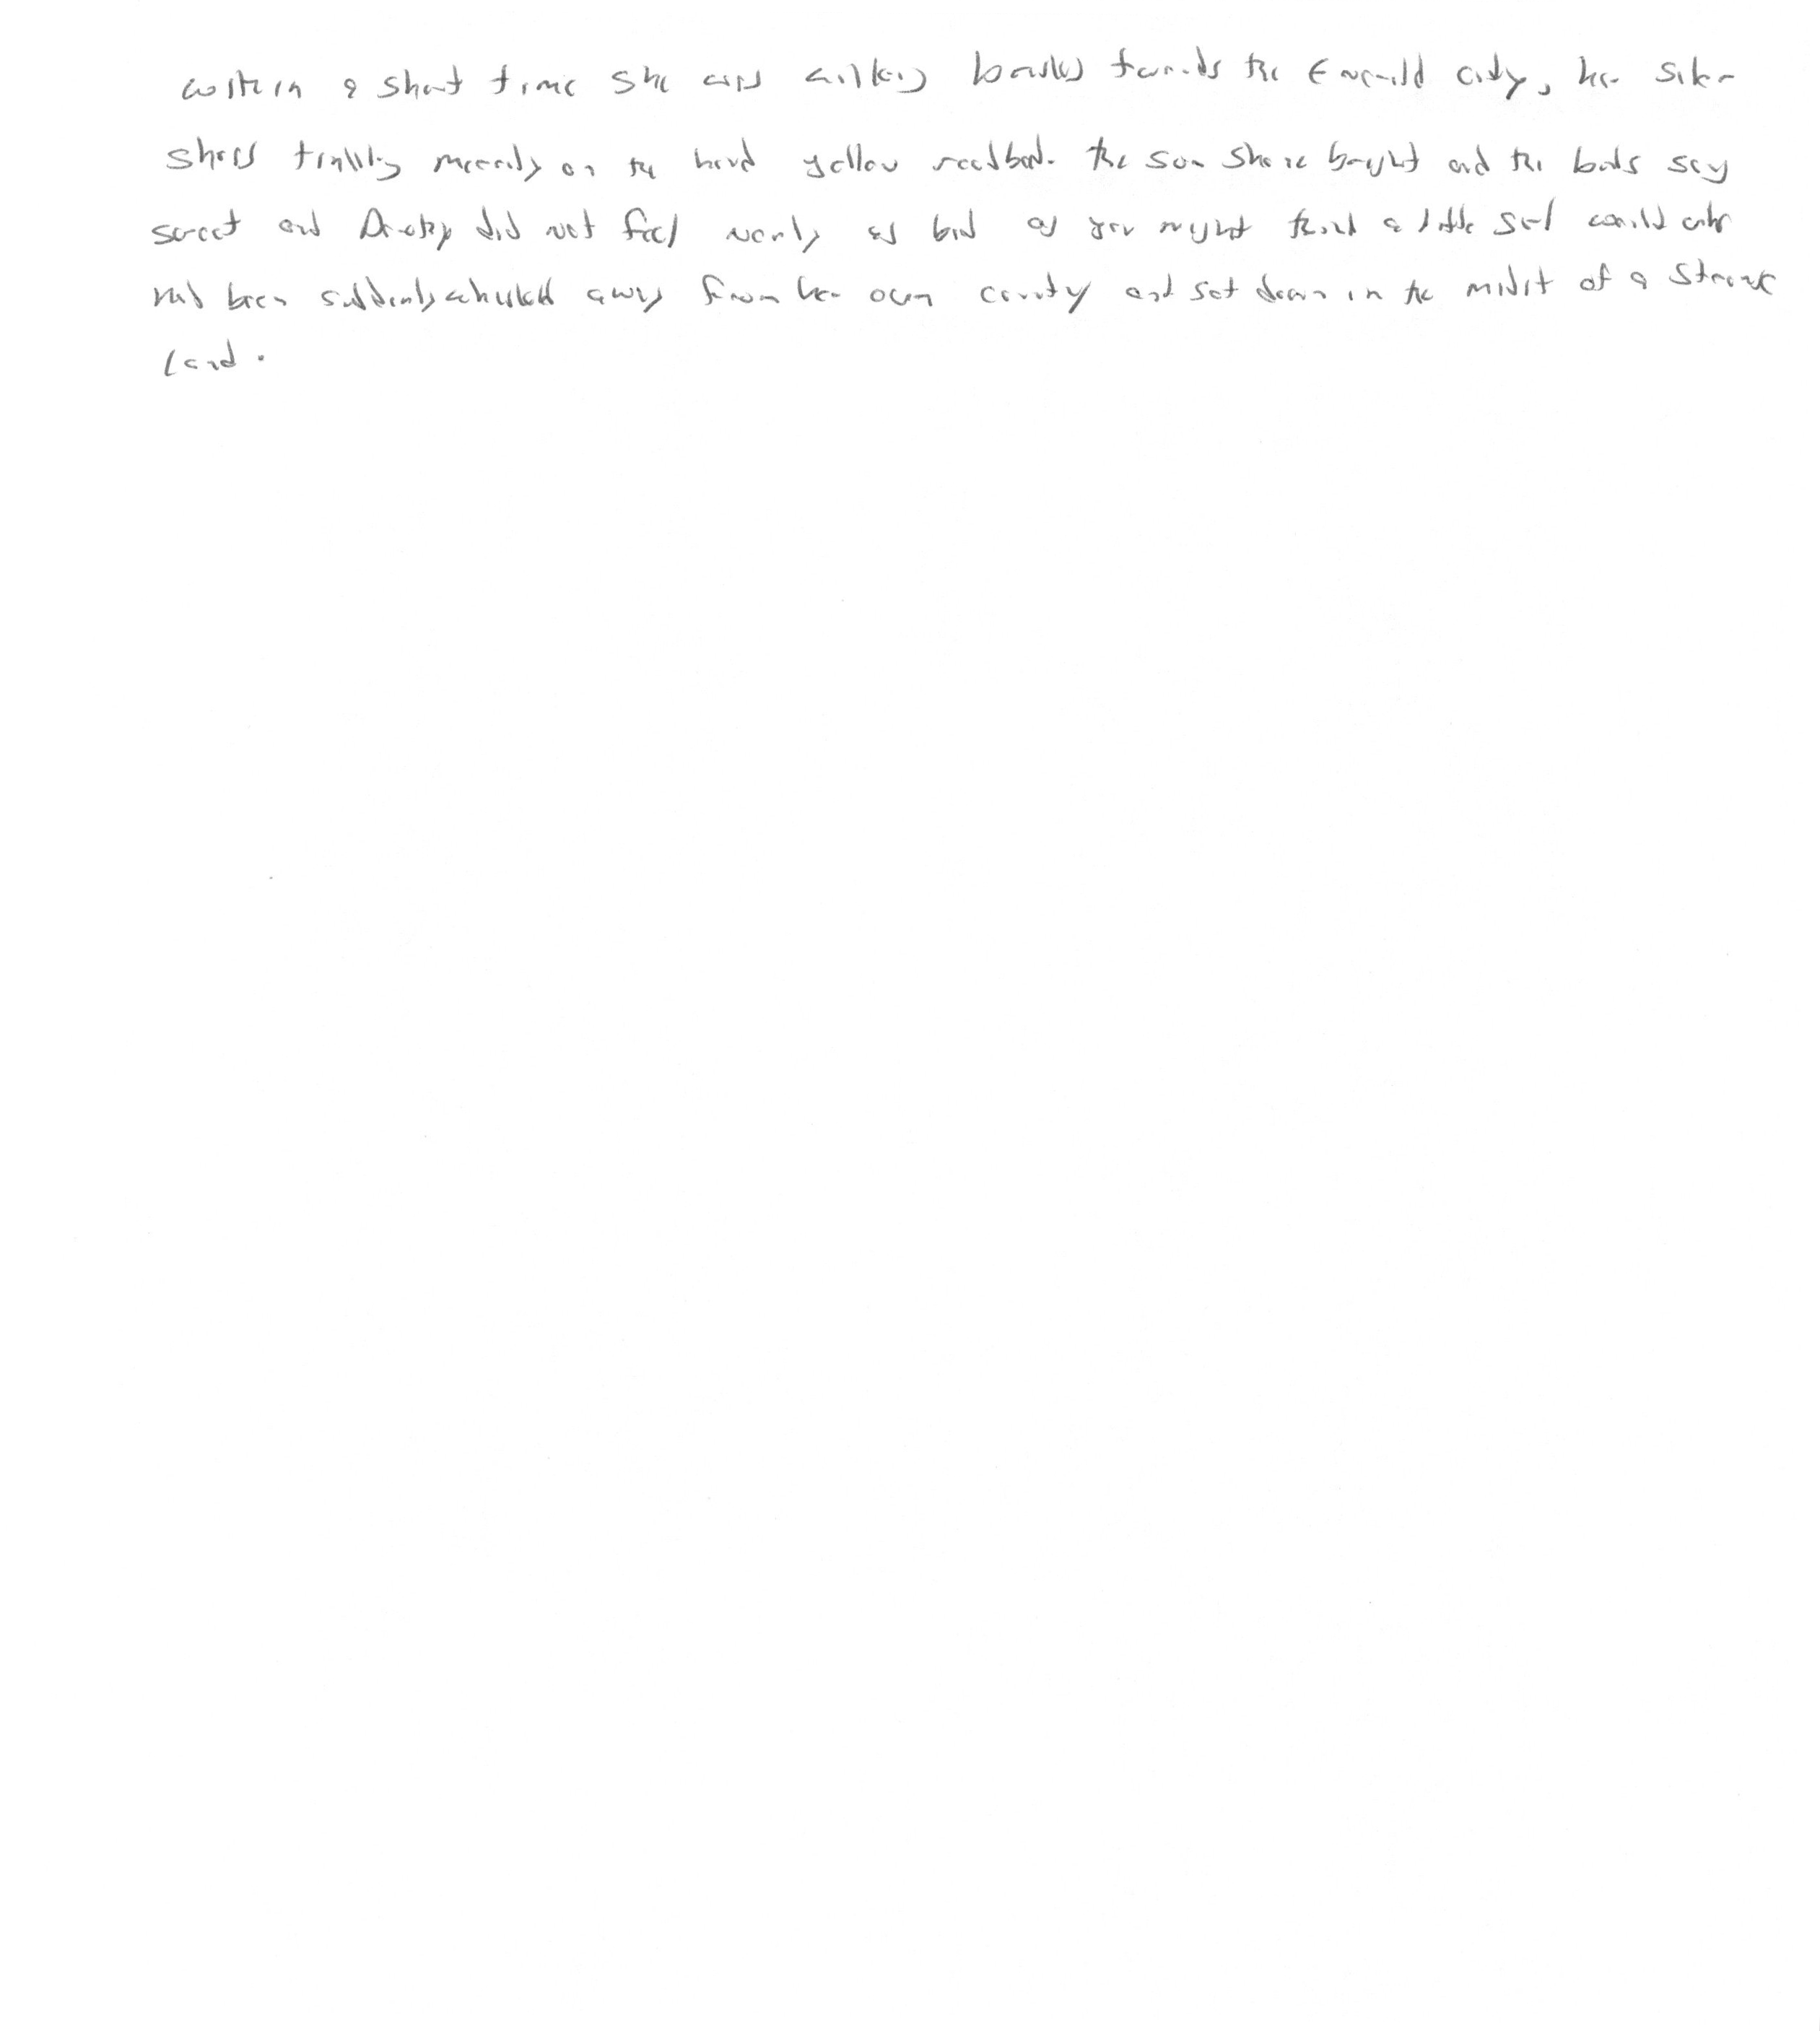 within a short time she was walking briskly towards the Emerald City, her silver
shoes tinkling merrily on the hard yellow roadbed. The sun shone bright and the birds sang
sweet and Dorothy did not feel nearly as bad as you might think a little girl would who
had been suddenly whisked away from her own country and set down in the midst of a strange
land.